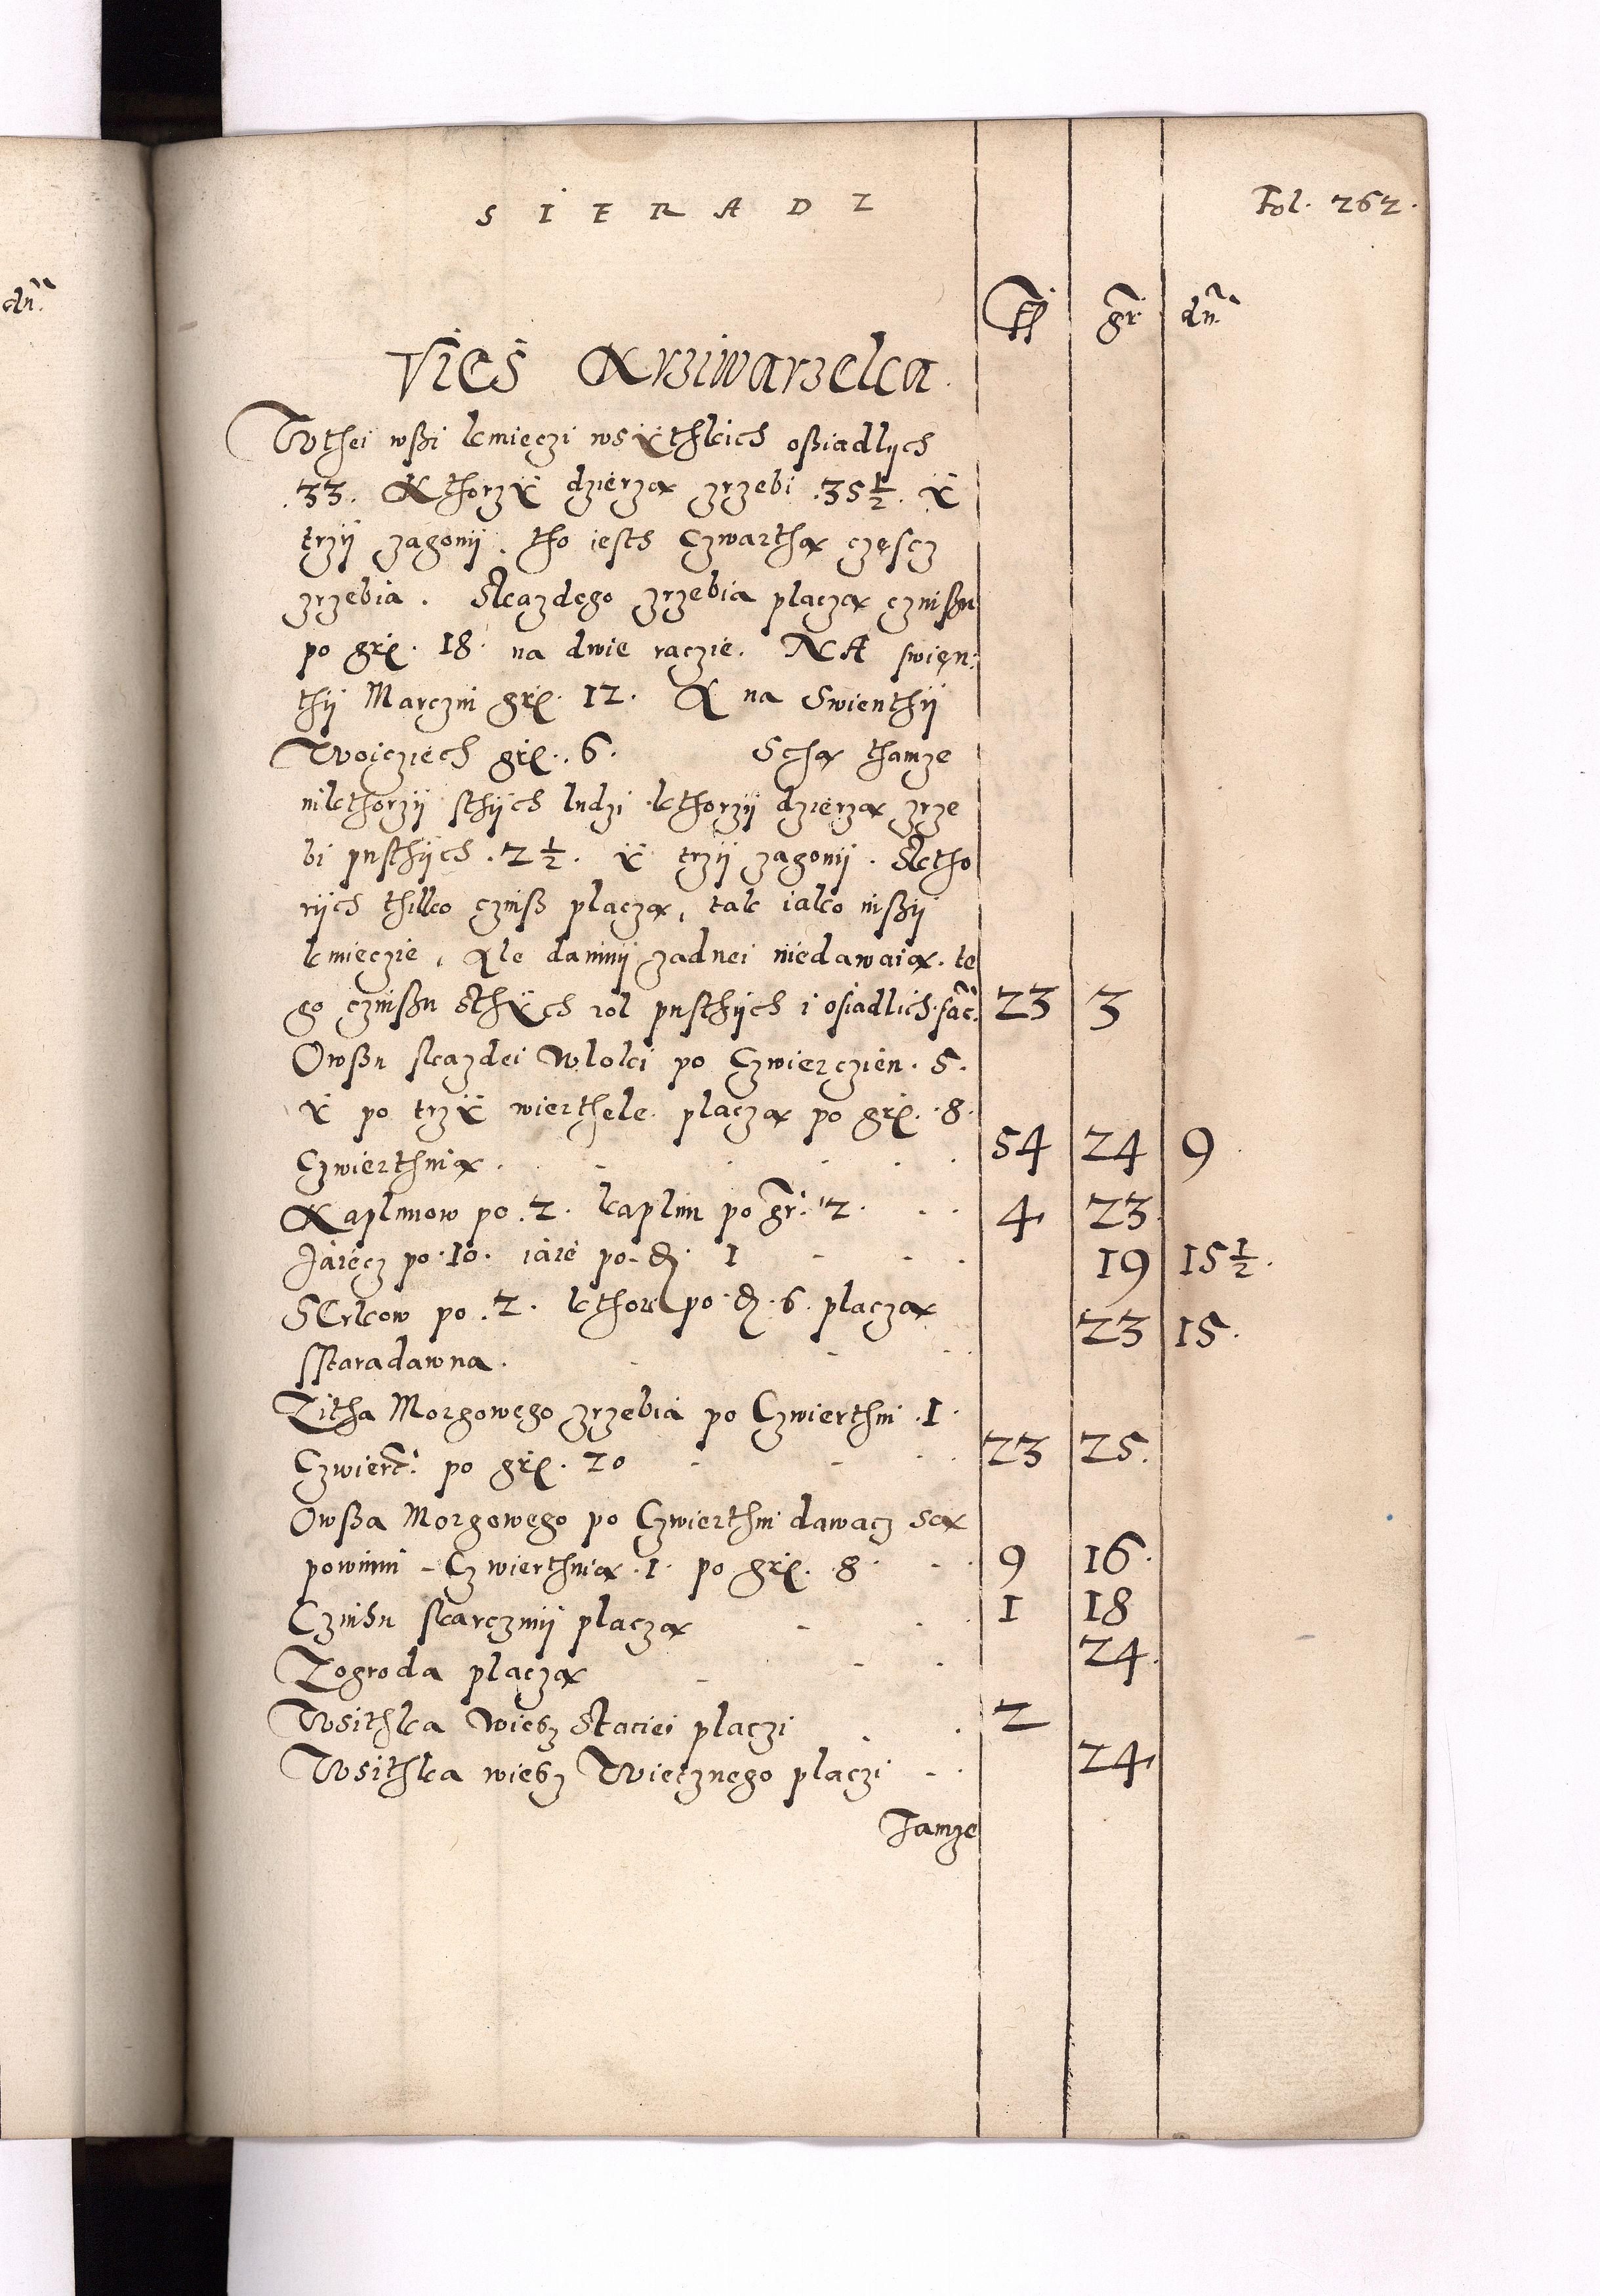 SIERADZ
Fol. 262.
dn.
fl gr dn.
Vieś Krziwarzeka.
Wthei wßi kmieczi wsÿthkich oßiadlÿch
.33. Kthorzÿ dzierzą zrzebi .35 1/2. ÿ
trzÿ zagonÿ. tho iesth Czwarthą częscz
zrzebia. Skazdego zrzebia placzą czinßu
po grę. 18. na dwie raczie. NA swięn:
thÿ Marczin grę. 12. A na Swienthÿ
Woicziech grę. 6. Sthą thamze
niktorzÿ sthÿch ludzi kthorzÿ dzierzą zrze
bi pusthÿch .2 1/2. ÿ trzÿ zagonÿ. Sktho
rÿch thilko czinß placzą, tak iako inßÿ
kmieczie, Ale daninÿ zadnei niedawaią. te
go czinßu sthÿch rol pusthÿch i osiadlich. fac. 23 3
Owßu skazdei Wloki po Czwierczien. 5.
ÿ po trzÿ wierthele placzą po grę. 8.
Czwierthnią. 54 24 9
Kaplunow po .2. kaplun po gr. 2. 4 23
Jaiecz po .10. iaie po d. 1 19 15 1/2.
SErkow po .2. kthori po d. 6. placzą 23 15.
sstaradawna.
Zitha Morgowego zrzebia po Czwierthni .1.
Czwiert. po grę. 20 23 25.
Owßa Morgowego po Czwierthni dawacz są
powinni Czwierthnią .1. po grę. 8. 9 16.
Czinsu skarczmÿ placzą 1 18
Zogroda placzą 24.
Wsithka Wiesz Staciei placzi 2
Wsithka wiesz Wiecznego placzi 24
Tamze